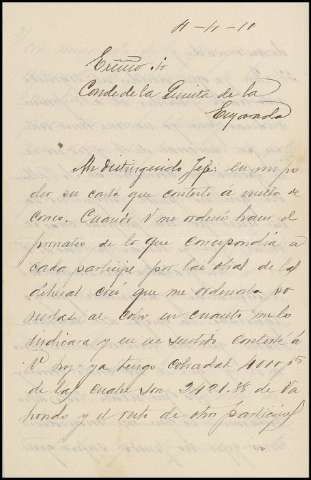 11-4-10
Excmo. Sr.
Conde de la Quinta de la
Enjarada
Mi distinguido Jefe: en mi po
der su carta que contesto a vuelta de
correo. Cuando V me ordenó hacer el
prorrateo de lo que correspondia á
cada participe por las obras de las
creí que me ordenaba po
nerlas al cobro en cuanto me lo
indicara y en ese sentido conteste á
Vd hoy ya tengo cobradas 4000 pts
de las cuales son 2421.88 de Va
ponde y el resto de otros participes